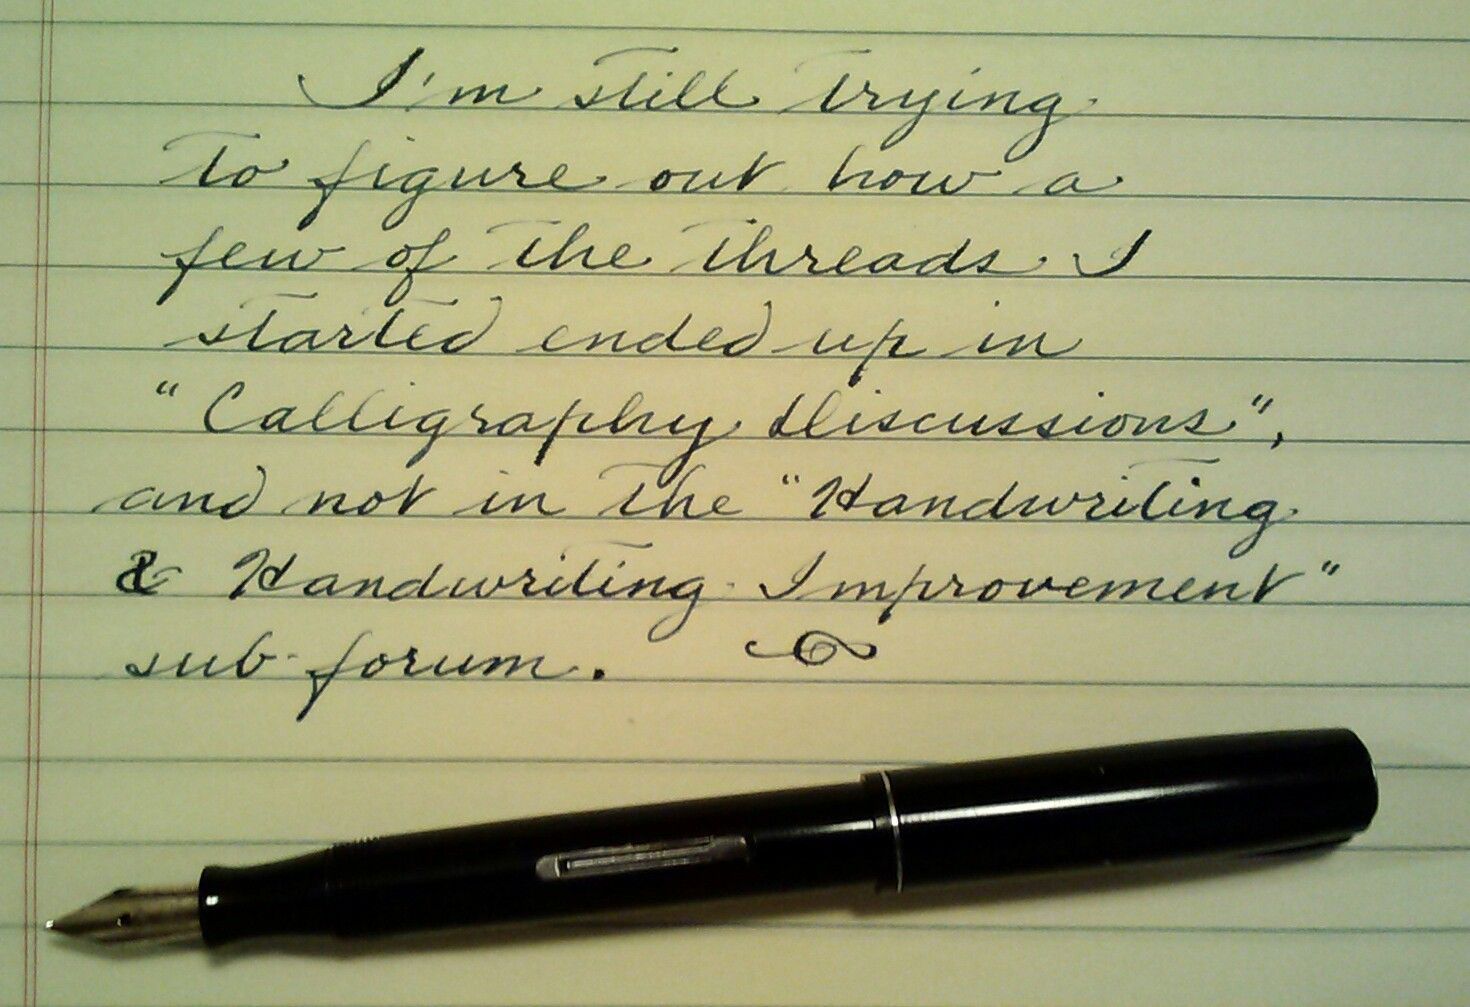 I'm still trying
to figure out how a
few of the threads I
started ended up in
"Calligraphy Discussions",
and not in the "Handwriting
& Handwriting Improvement"
sub-forum.